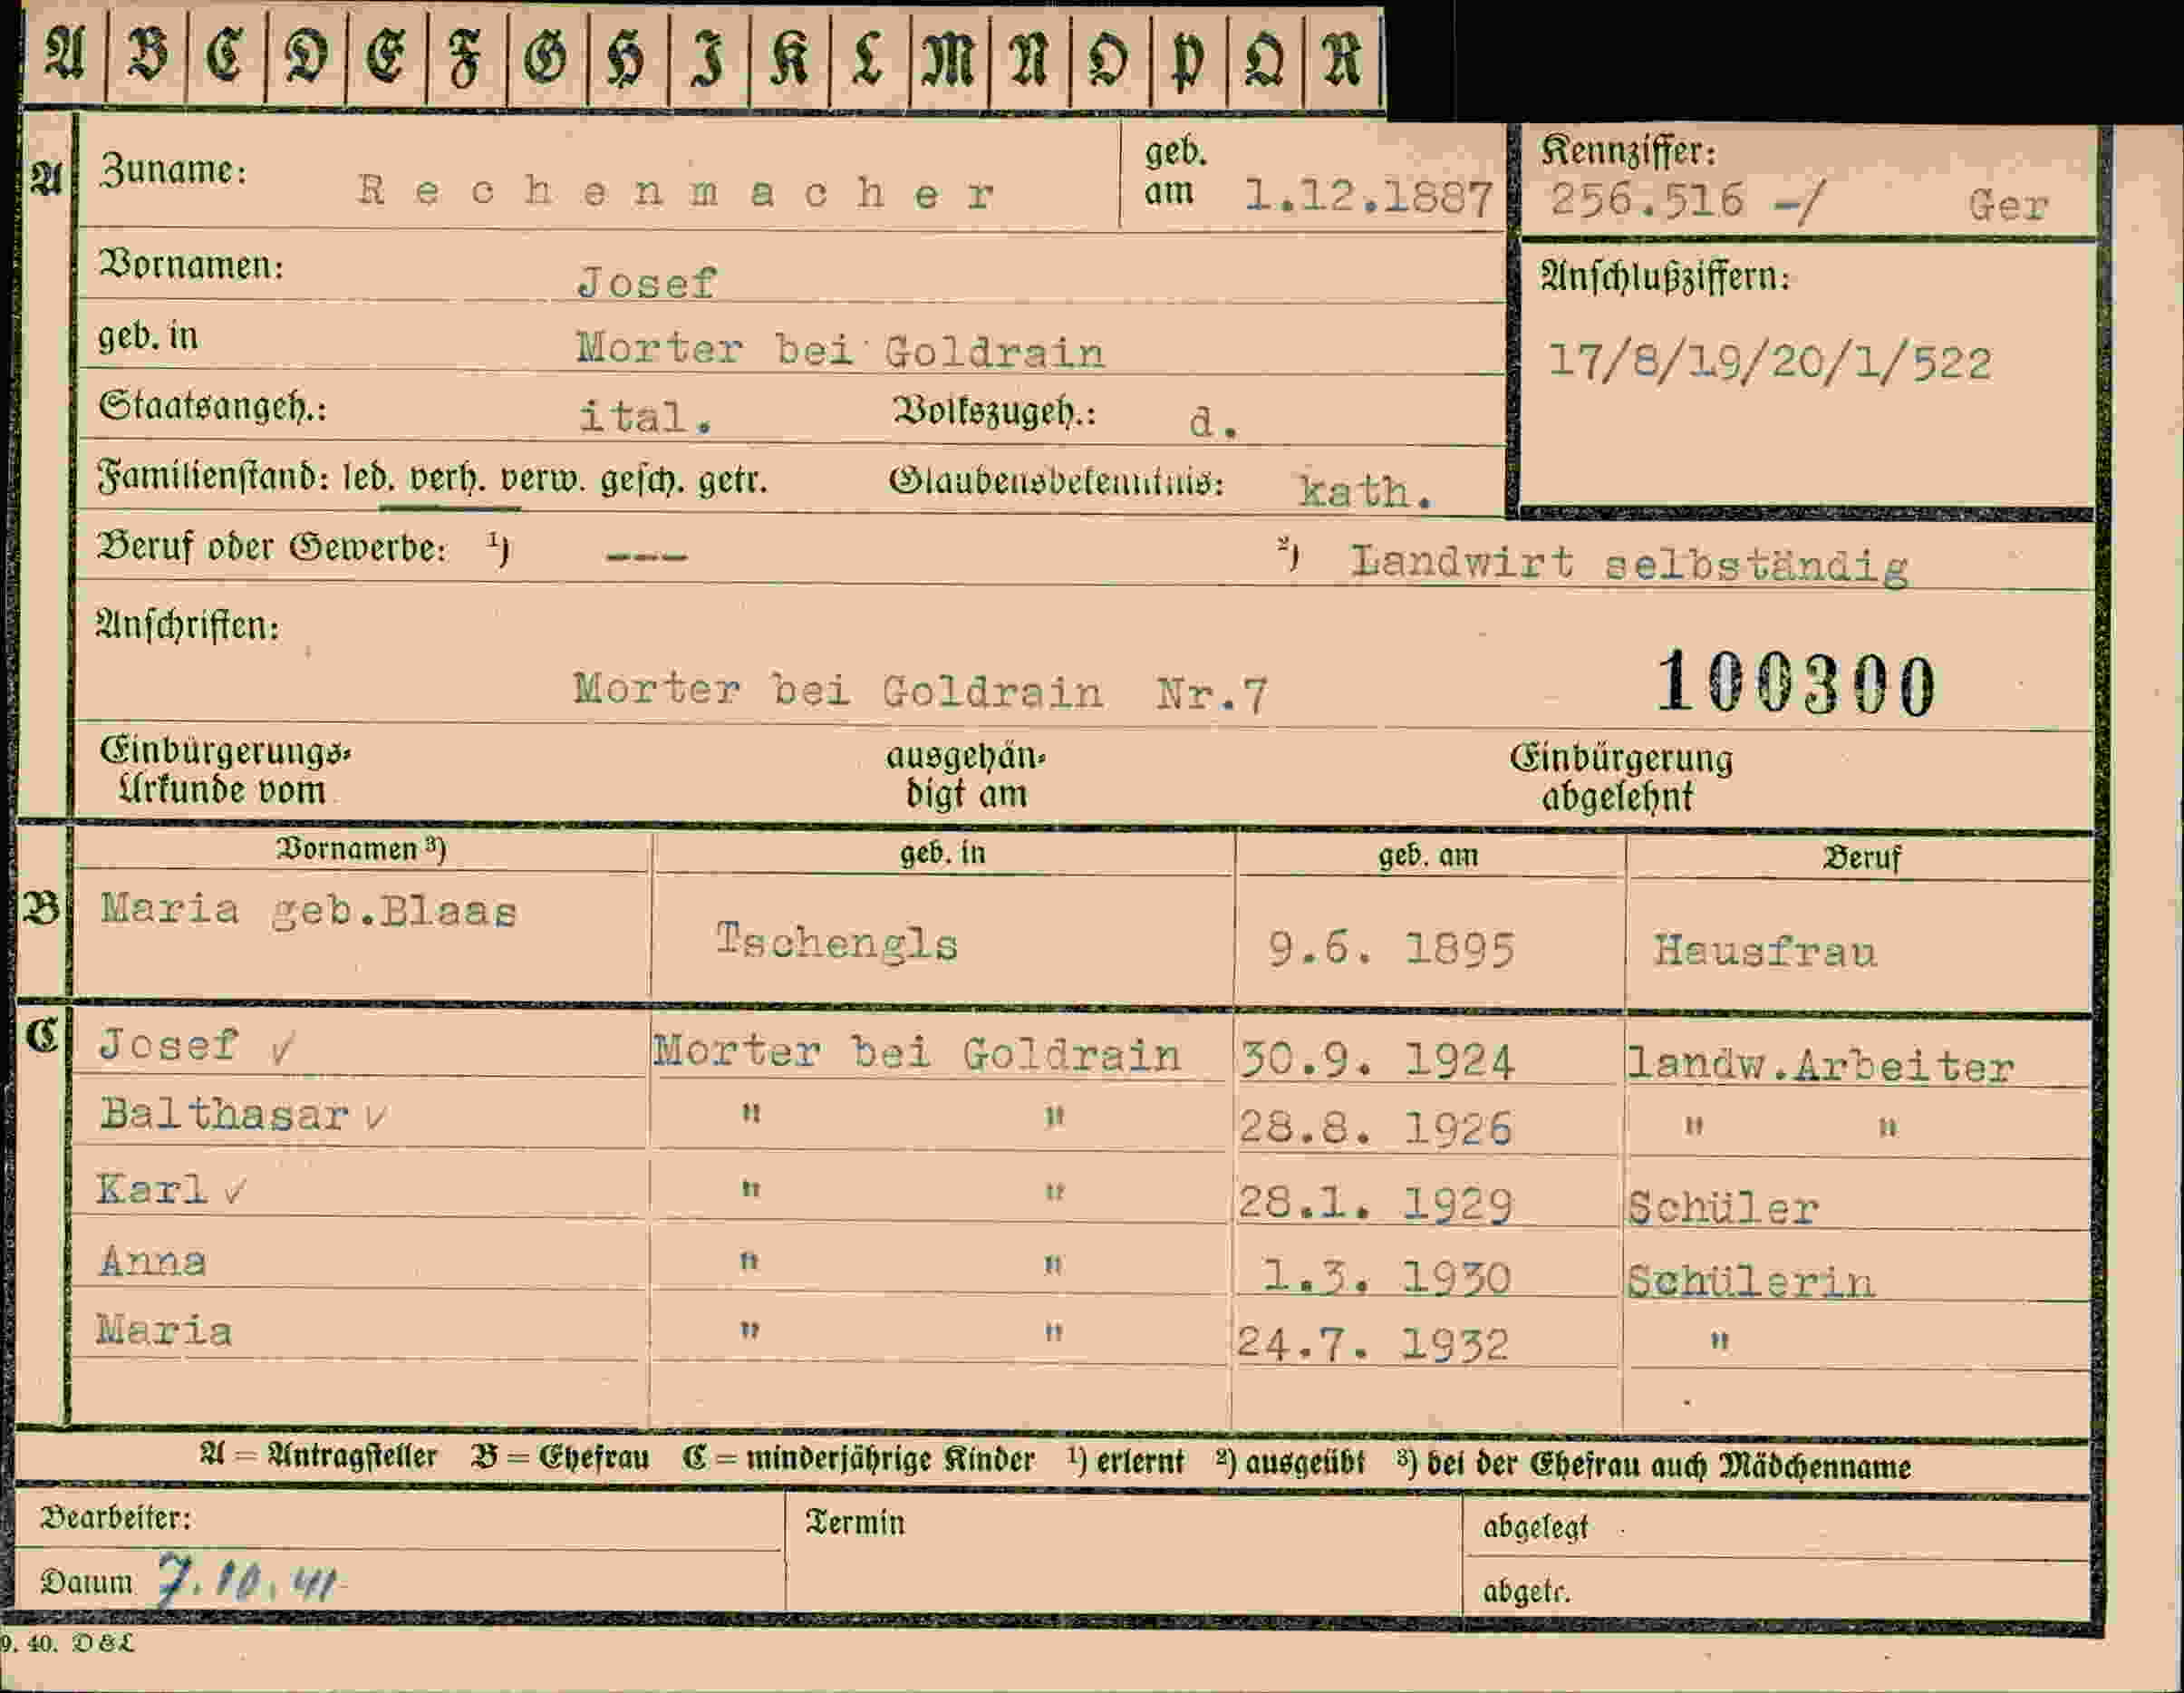 A B C D E F G H I K L M N O P Q R
A Zuname: Rechenmacher geb. am 1.12.1887 Kennziffer: 256.516 -/ Ger
Vornamen: Josef Anschlußziffern:
geb. in Morter bei Goldrain 17/8/19/20/1/522
Staatsangeh.: ital. Volkszugeh.: d.
Familienstand: led. verh. verw. gesch. getr. Glaubensbekenntnis: kath.
Beruf oder Gewerbe: 1) --- 2) Landwirt selbständig
Anschriften:
Morter bei Goldrain Nr.7 100300
Einbürgerungs- ausgehän- Einbürgerung
Urkunde vom digt am abgelehnt
Vornamen 3) geb. in geb. am Beruf
B Maria geb.Blaas Tschengls 9.6. 1895 Hausfrau
C Josef ✓ Morter bei Goldrain 30.9. 1924 landw.Arbeiter
Balthasar ✓ " " 28.8. 1926 " "
Karl ✓ " " 28.1. 1929 Schüler
Anna " " 1.3. 1930 Schülerin
Maria " " 24.7. 1932 "
A = Antragsteller B = Ehefrau C = minderjährige Kinder 1) erlernt 2) ausgeübt 3) bei der Ehefrau auch Mädchenname
Bearbeiter: Termin abgelegt
Datum 7.10.41 abgetr.
9. 40. D&L